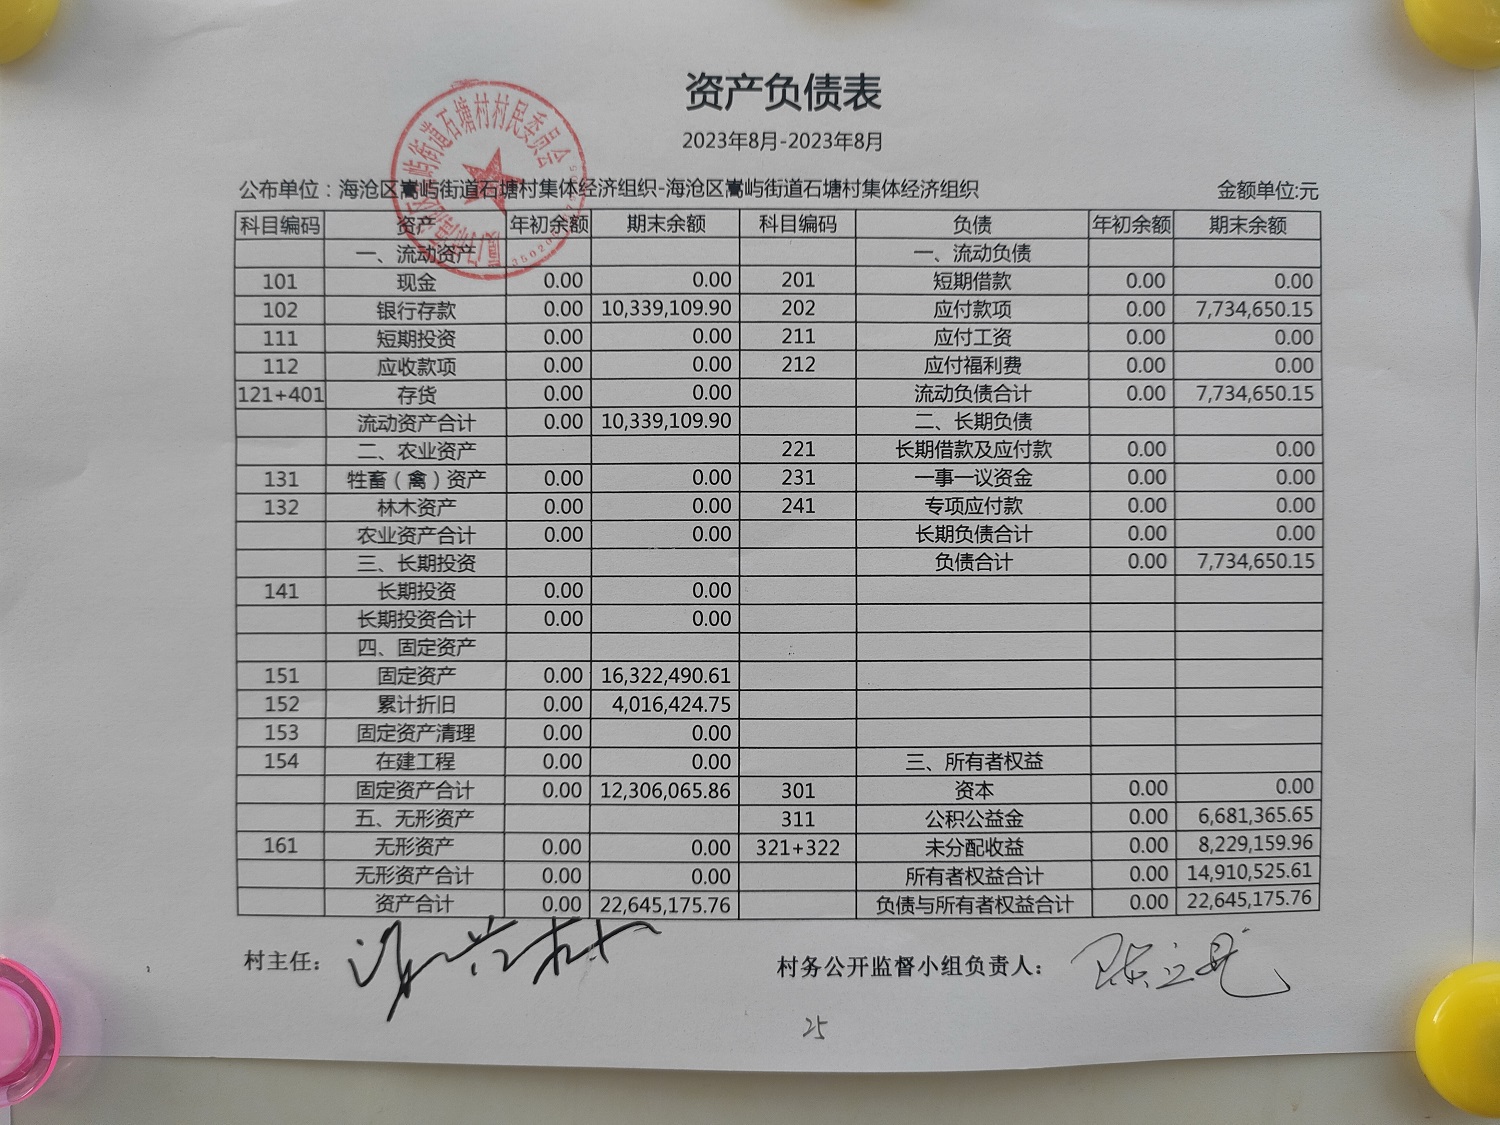 资产负债表
2023年8月-2023年8月
公布单位：海沧区嵩屿街道石塘村集体经济组织-海沧区嵩屿街道石塘村集体经济组织 金额单位:元
科目编码 资产 年初余额 期末余额 科目编码 负债 年初余额 期末余额
一、流动资产 一、流动负债
101 现金 0.00 0.00 201 短期借款 0.00 0.00
102 银行存款 0.00 10,339,109.90 202 应付款项 0.00 7,734,650.15
111 短期投资 0.00 0.00 211 应付工资 0.00 0.00
112 应收款项 0.00 0.00 212 应付福利费 0.00 0.00
121+401 存货 0.00 0.00 流动负债合计 0.00 7,734,650.15
流动资产合计 0.00 10,339,109.90 二、长期负债
二、农业资产 221 长期借款及应付款 0.00 0.00
131 牲畜（禽）资产 0.00 0.00 231 一事一议资金 0.00 0.00
132 林木资产 0.00 0.00 241 专项应付款 0.00 0.00
农业资产合计 0.00 0.00 长期负债合计 0.00 0.00
三、长期投资 负债合计 0.00 7,734,650.15
141 长期投资 0.00 0.00
长期投资合计 0.00 0.00
四、固定资产
151 固定资产 0.00 16,322,490.61
152 累计折旧 0.00 4,016,424.75
153 固定资产清理 0.00 0.00
154 在建工程 0.00 0.00 三、所有者权益
固定资产合计 0.00 12,306,065.86 301 资本 0.00 0.00
五、无形资产 311 公积公益金 0.00 6,681,365.65
161 无形资产 0.00 0.00 321+322 未分配收益 0.00 8,229,159.96
无形资产合计 0.00 0.00 所有者权益合计 0.00 14,910,525.61
资产合计 0.00 22,645,175.76 负债与所有者权益合计 0.00 22,645,175.76
村主任： 村务公开监督小组负责人：
25
街道石塘村村民委员会